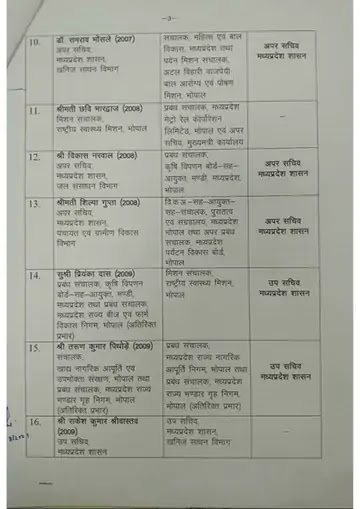 --3--
10. डॉ. रामराव भोंसले (2007)
अपर सचिव,
मध्यप्रदेश शासन,
खनिज साधन विभाग
संचालक, महिला एवं बाल
विकास, मध्यप्रदेश तथा
पदेन मिशन संचालक,
अटल बिहारी वाजपेयी
बाल आरोग्य एवं पोषण
मिशन, भोपाल
अपर सचिव
मध्यप्रदेश शासन
11. श्रीमती छवि भारद्वाज (2008)
मिशन संचालक,
राष्ट्रीय स्वास्थ्य मिशन, भोपाल
प्रबंध संचालक, मध्यप्रदेश
मेट्रो रेल कॉर्पोरेशन
लिमिटेड, भोपाल एवं अपर
सचिव, मुख्यमंत्री कार्यालय
--
12. श्री विकास नरवाल (2008)
अपर सचिव,
मध्यप्रदेश शासन,
जल संसाधन विभाग
प्रबंध संचालक,
कृषि विपणन बोर्ड-सह-
आयुक्त, मण्डी, मध्यप्रदेश,
भोपाल
अपर सचिव
मध्यप्रदेश शासन
13. श्रीमती शिल्पा गुप्ता (2008)
अपर सचिव,
मध्यप्रदेश शासन,
पंचायत एवं ग्रामीण विकास
विभाग
वि.क.अ.-सह-आयुक्त-
सह-संचालक, पुरातत्व
एवं संग्रहालय, मध्यप्रदेश
भोपाल तथा अपर प्रबंध
संचालक, मध्यप्रदेश
पर्यटन विकास बोर्ड,
भोपाल
अपर सचिव
मध्यप्रदेश शासन
14. सुश्री प्रियंका दास (2009)
प्रबंध संचालक, कृषि विपणन
बोर्ड-सह-आयुक्त, मण्डी,
मध्यप्रदेश तथा प्रबंध संचालक,
मध्यप्रदेश राज्य बीज एवं फार्म
विकास निगम, भोपाल (अतिरिक्त
प्रभार)
मिशन संचालक,
राष्ट्रीय स्वास्थ्य मिशन,
भोपाल
उप सचिव
मध्यप्रदेश शासन
15. श्री तरूण कुमार पिथोड़े (2009)
संचालक,
खाद्य नागरिक आपूर्ति एवं
उपभोक्ता संरक्षण, भोपाल तथा
प्रबंध संचालक, मध्यप्रदेश राज्य
भण्डार गृह निगम, भोपाल
(अतिरिक्त प्रभार)
प्रबंध संचालक,
मध्यप्रदेश राज्य नागरिक
आपूर्ति निगम, भोपाल तथा
प्रबंध संचालक, मध्यप्रदेश
राज्य भण्डार गृह निगम,
भोपाल (अतिरिक्त प्रभार)
उप सचिव
मध्यप्रदेश शासन
16. श्री राकेश कुमार श्रीवास्तव
(2009)
उप सचिव,
मध्यप्रदेश शासन
उप सचिव,
मध्यप्रदेश शासन,
खनिज साधन विभाग
--